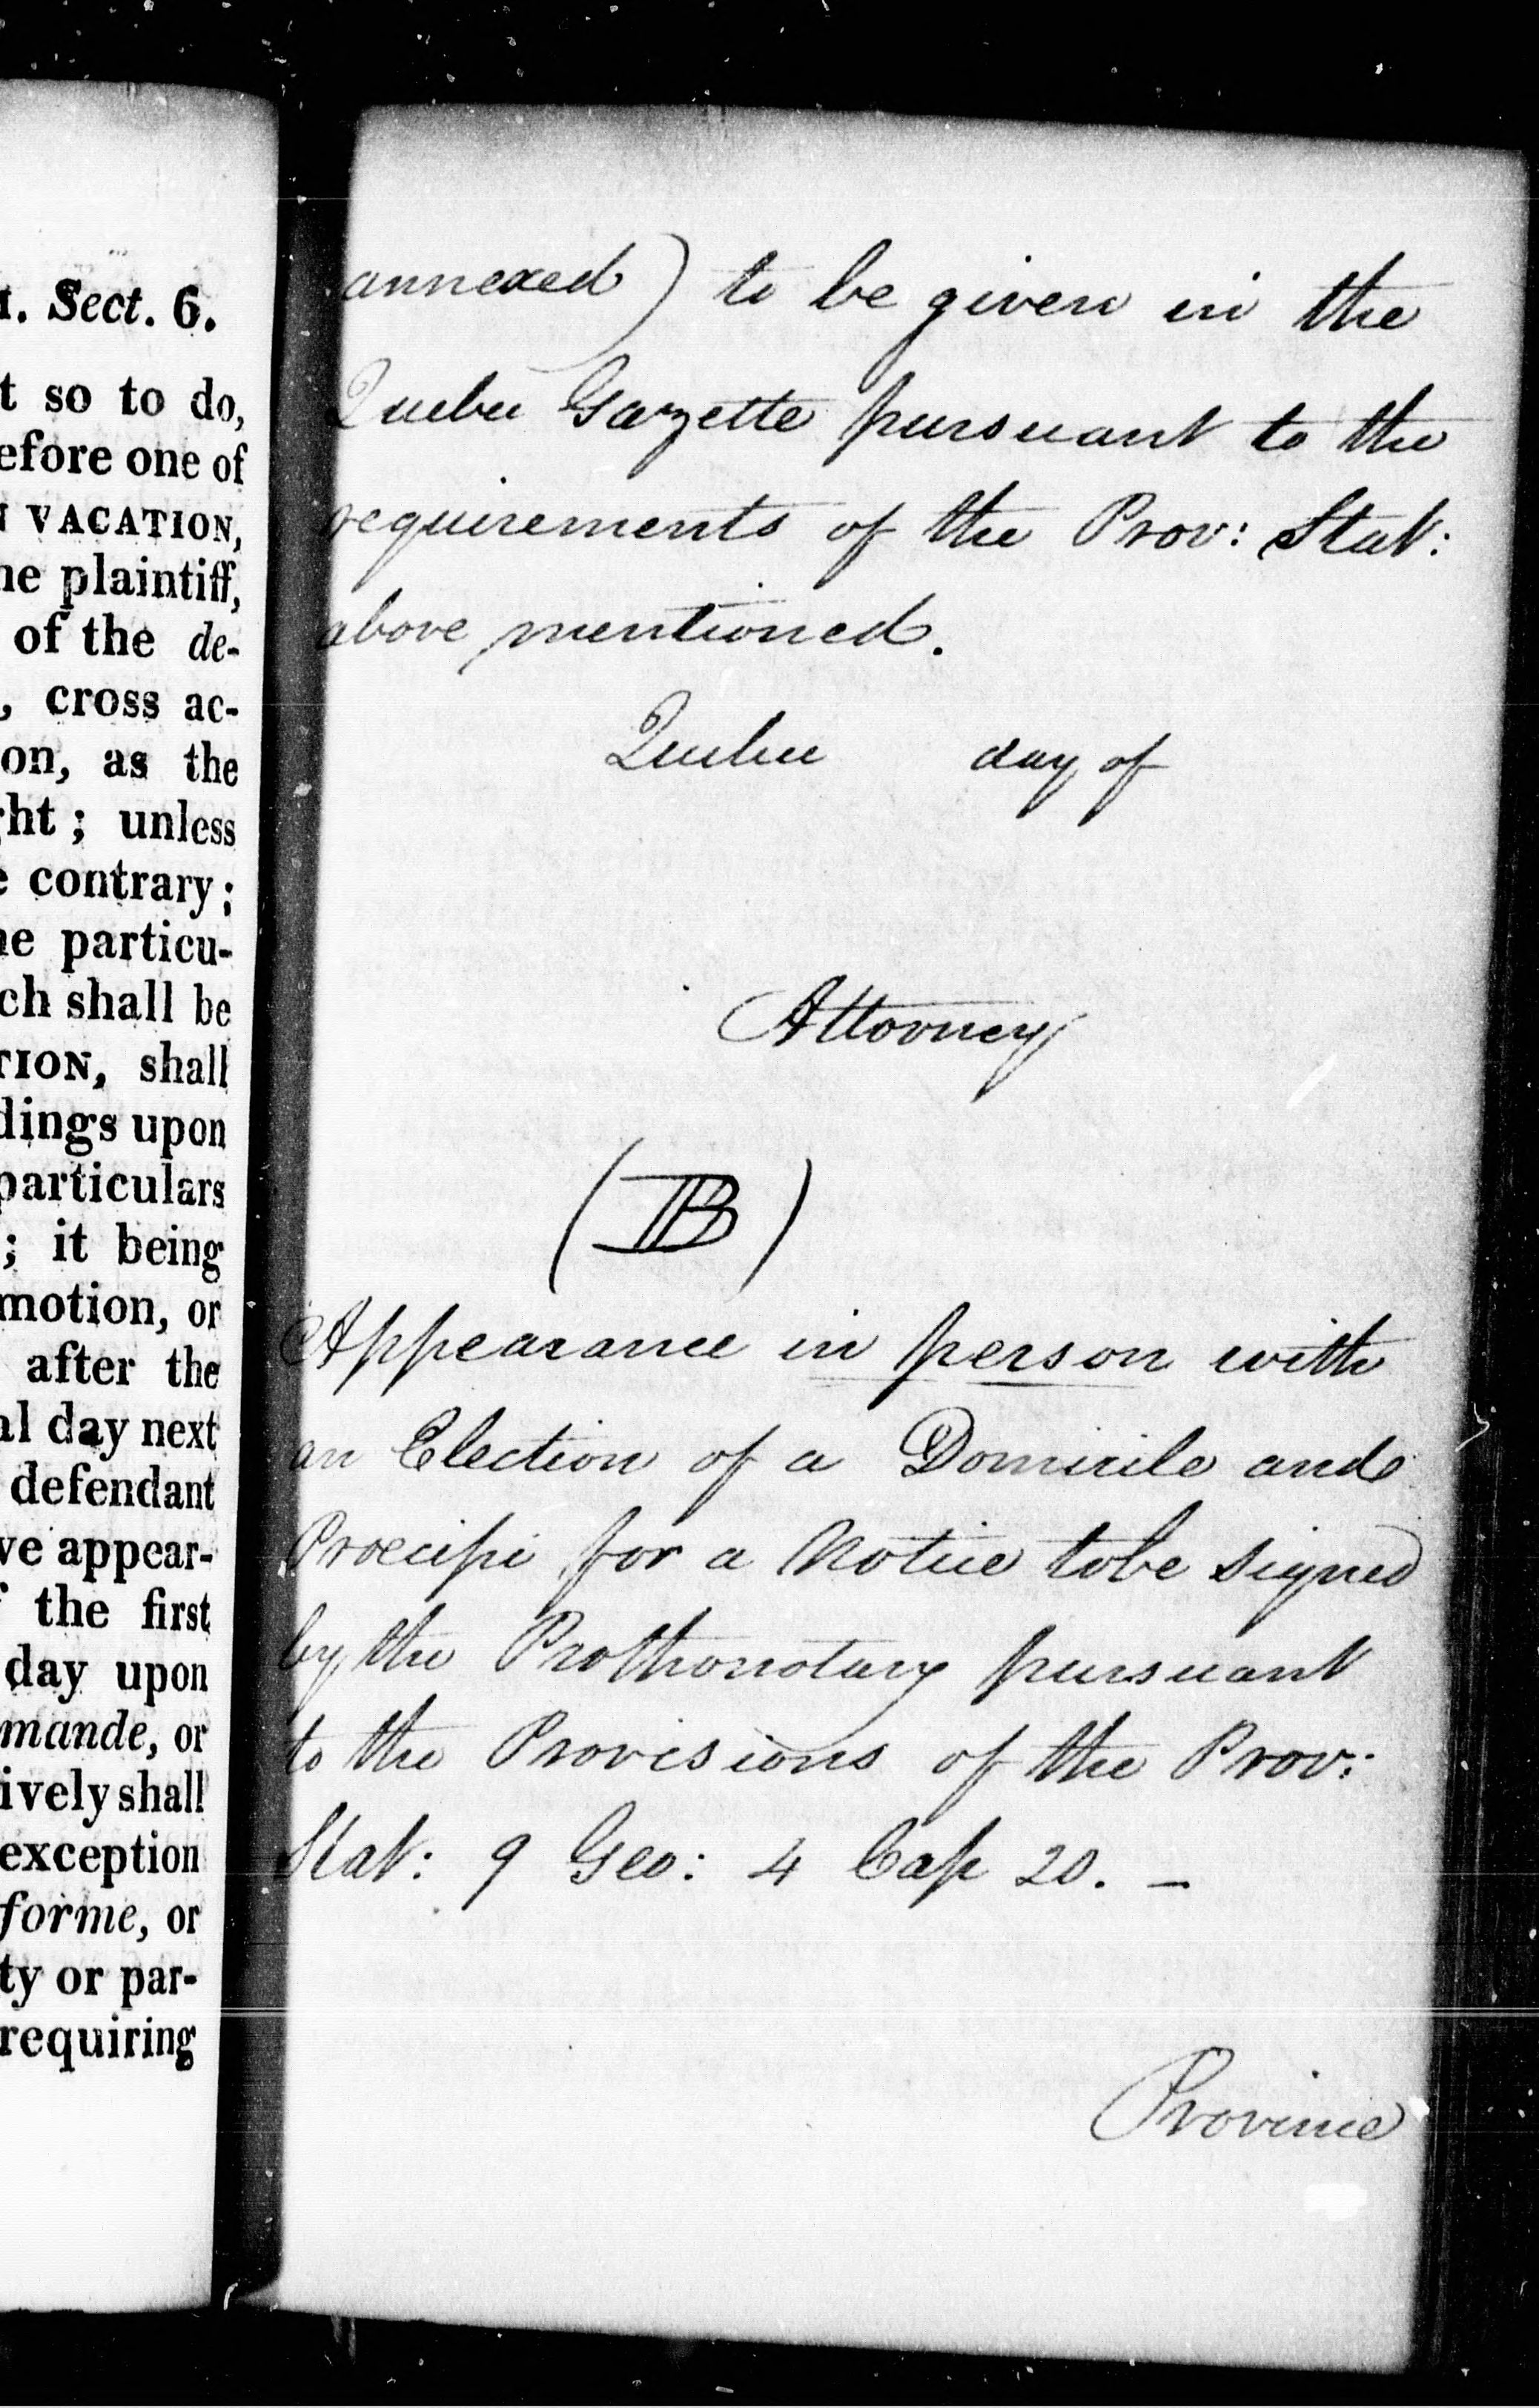 I. Sect. 6.
t so to do,
efore one of
N VACATION,
he plaintiff,
of the de-
, cross ac-
on, as the
ght ; unless
e contrary ;
he particu-
ch shall be
TION, shall
dings upon
particulars
; it being
motion, or
after the
al day next
defendant
ve appear-
f the first
day upon
mande, or
ively shall
exception
forme, or
ty or par-
requiring
annexed ) to be given in the
Quebec Gazette pursuant to the
requirements of the Prov: Stat:
above mentioned.
Quebec day of
Attorney
(B)
Appearance in person with
an Election of a Domicile and
Proecipi for a Notice to be signed
by the Prothonotary pursuant
to the Provisions of the Prov:
Stat: 9 Geo: 4 Cap 20. –
Province